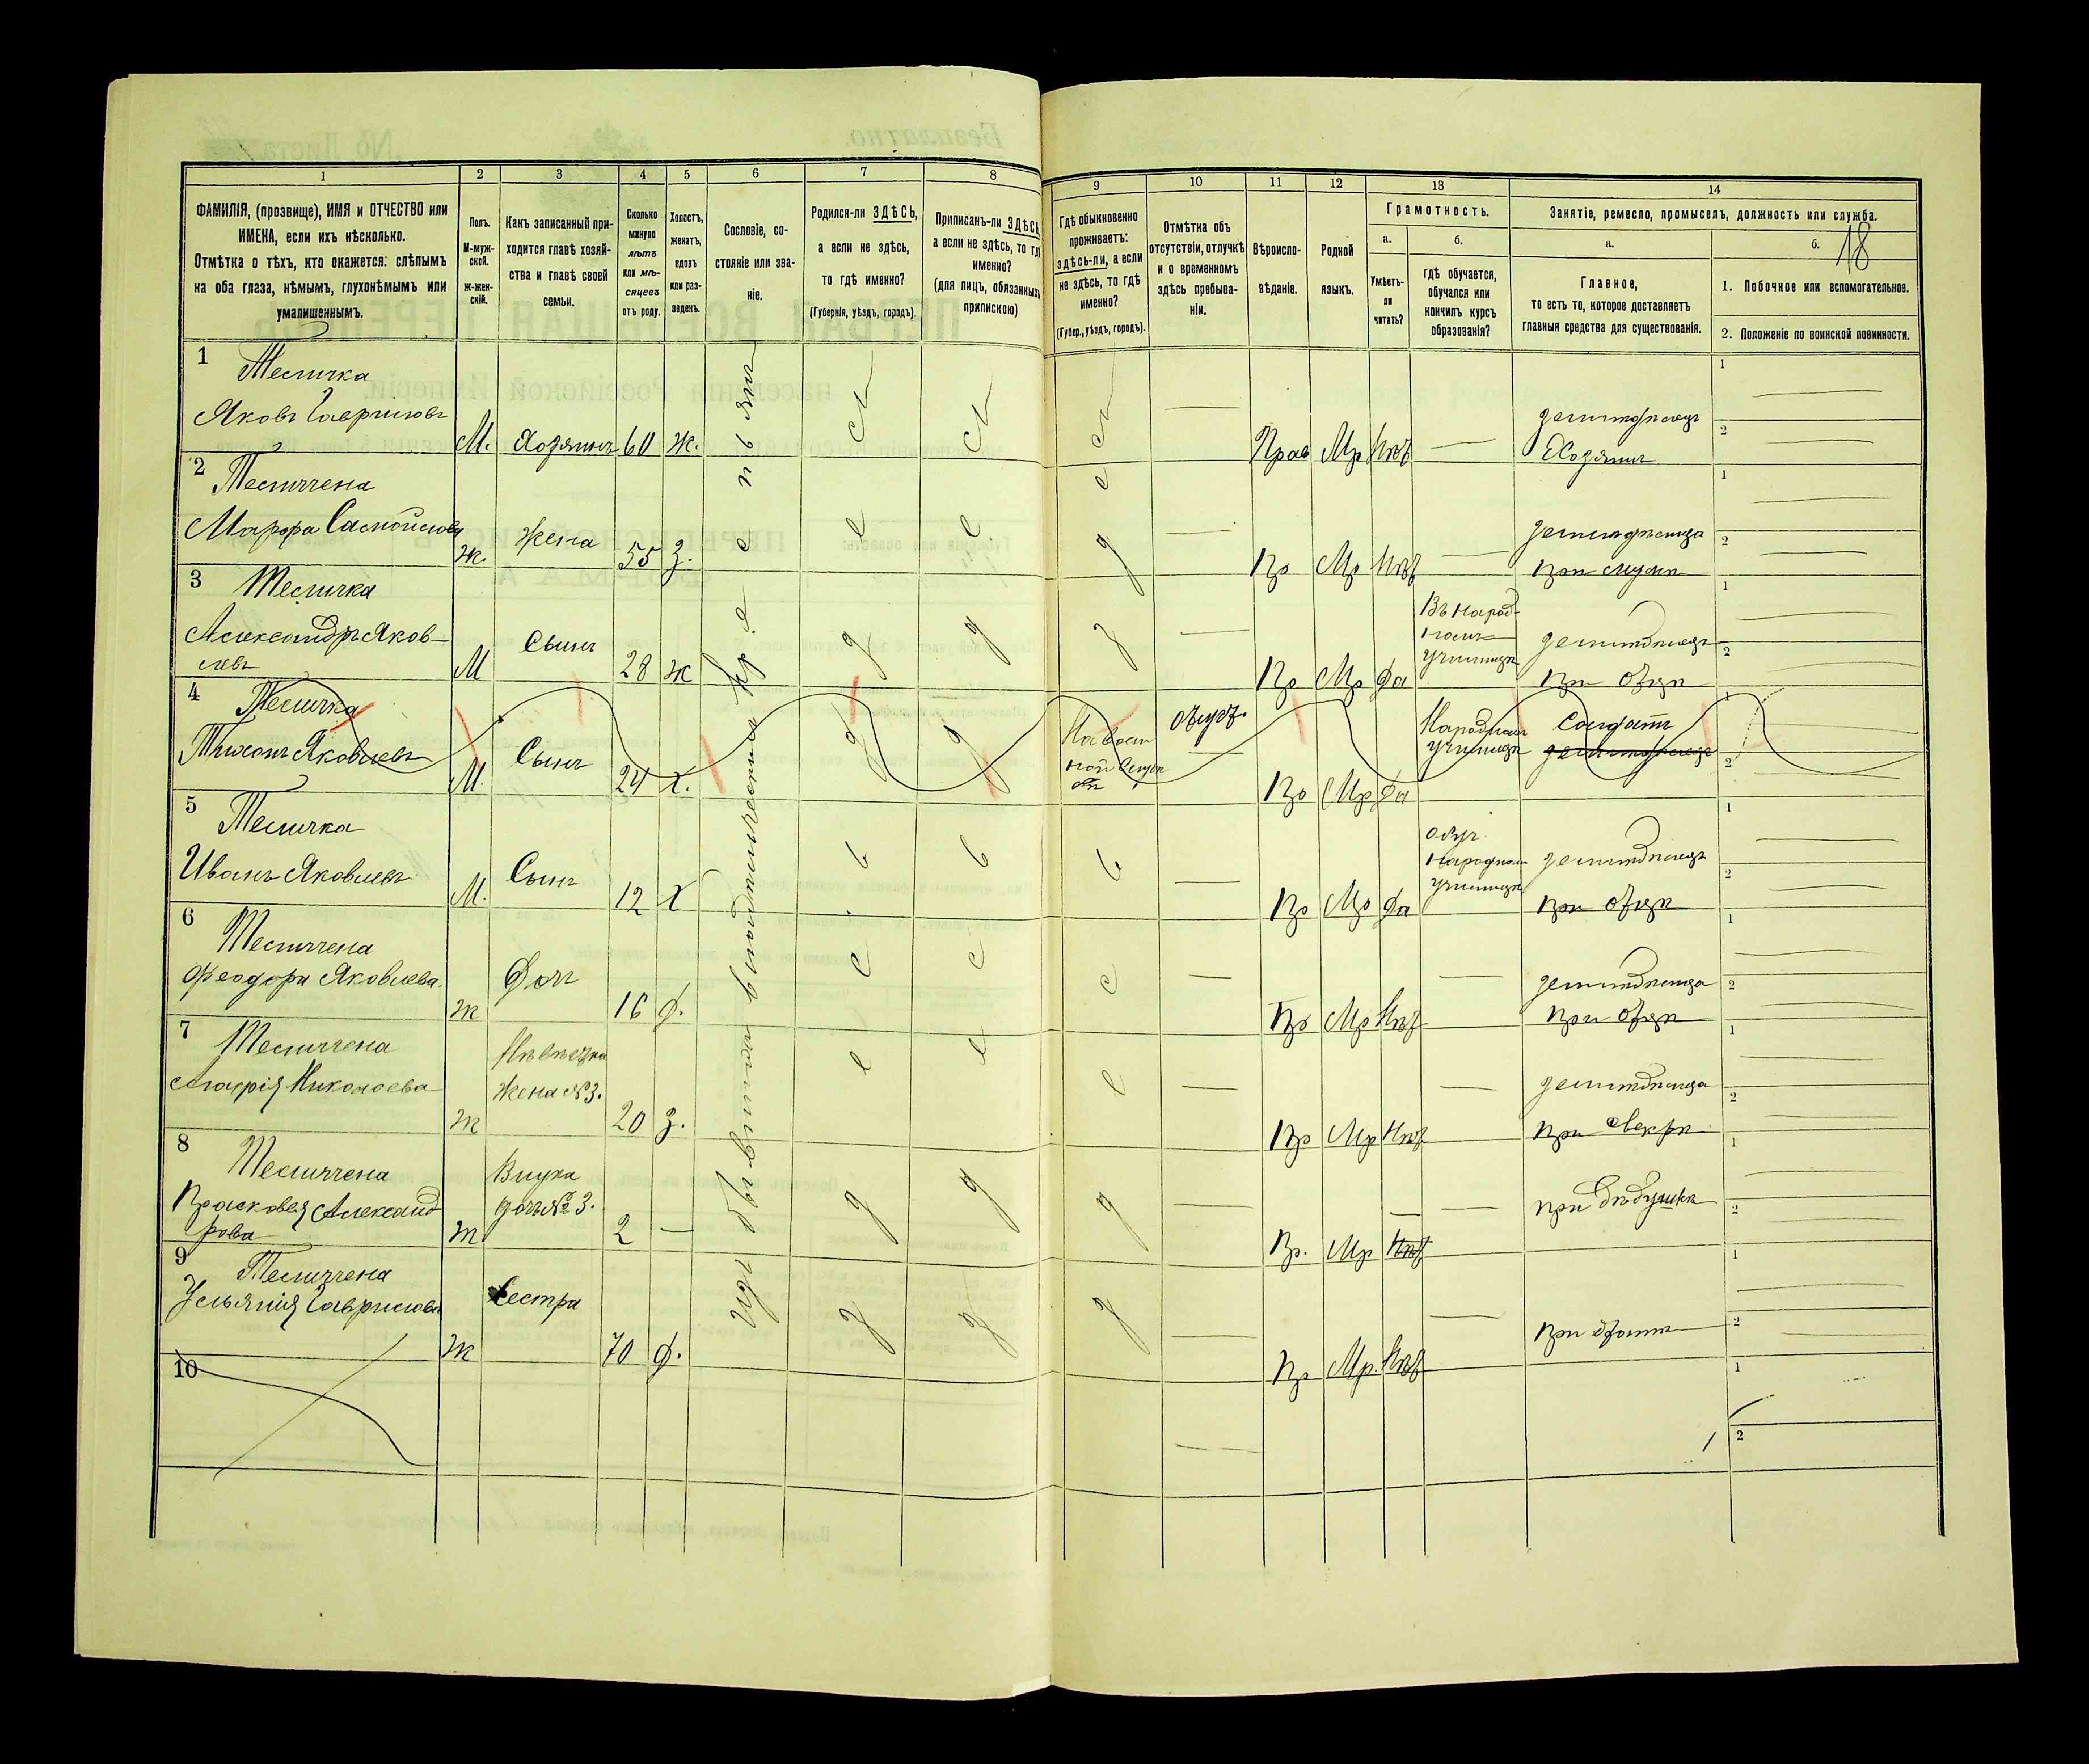 1 2 3 4 5 6 7 8 9 10 11 12 13 14
ФАМИЛІЯ, (прозвище), ИМЯ и ОТЧЕСТВО или
ИМЕНА, если ихъ нѣсколько.
Отмѣтка о тѣхъ, кто окажется: слѣпымъ
на оба глаза, нѣмымъ, глухонѣмымъ или
умалишеннымъ.
Полъ.
М-муж-
ской.
Ж-жен-
скій.
Какъ записанный при-
ходится главѣ хозяй-
ства и главѣ своей
семьи.
Сколько
минуло
лѣтъ
или мѣ-
сяцевъ
отъ роду.
Холостъ,
женатъ,
вдовъ
или раз-
веденъ.
Сословіе, со-
стояніе или зва-
ніе.
Родился-ли ЗДѢСЬ,
а если не здѣсь,
то гдѣ именно?
(Губернія, уѣздъ, городъ).
Приписанъ-ли ЗДѢСЬ,
а если не здѣсь, то гдѣ
именно?
(для лицъ, обязанныхъ
припискою)
Гдѣ обыкновенно
проживаетъ:
здѣсь-ли, а если
не здѣсь, то гдѣ
именно?
(Губер., уѣздъ, городъ).
Отмѣтка объ
отсутствіи, отлучкѣ
и о временномъ
здѣсь пребыва-
ніи.
Вѣроиспо-
вѣданіе.
Родной
языкъ.
Грамотность.
а.
Умѣетъ-
ли
читать?
б.
гдѣ обучается,
обучался или
кончилъ курсъ
образованія?
Занятіе, ремесло, промыселъ, должность или служба.
а.
Главное,
то есть то, которое доставляетъ
главныя средства для существованія.
б.
18
1. Побочное или вспомогательное.
2. Положеніе по воинской повинности.
Изъ бывшихъ владѣльческихъ кр.
1 Теличка
Яковъ Гавриловъ
М. Хозяинъ 60 ж.
Прав Мр Нѣт
земледѣлецъ
Хозяинъ
1
2
2 Теличчена
Марфа Самойлова
Ж. Жена 55 З.
Пр Мр Нѣт
земледѣлица
при мужѣ
1
2
3 Теличка
Александръ Яков-
левъ
М Сынъ 28 ж
Пр Мр Да
Въ Народ-
номъ
Училищѣ
земледѣлецъ
при отцѣ
1
2
4 Теличка
Тихонъ Яковлевъ
М. Сынъ 24 Х.
На воен
ной служ
бѣ
Пр Мр Да
Народномъ
училищѣ
Солдатъ
земледѣлецъ
1
2
5 Теличка
Иванъ Яковлевъ
М. Сынъ 12 Х
Пр Мр Да
Обуч.
Народном
Училищѣ
земледѣлецъ
при отцѣ
1
2
6 Теличчена
Феодора Яковлева
Ж Дочь 16 Д.
Пр Мр Нѣт
земледѣлица
при отцѣ
1
2
7 Теличчена
Агафія Николаева
Ж Невѣстка
Жена №3.
20 З.
Пр Мр Нѣт
земледѣлица
при свекрѣ
1
2
8 Теличчена
Прасковея Александ
рова
Ж Внука
дочь №3.
2
Пр. Мр Нѣт
при дѣдушкѣ
1
2
9 Теличчена
Ульянія Гаврилова
Ж Сестра 70 Д.
Пр Мр. Нѣт
при братѣ
1
2
10
1
2